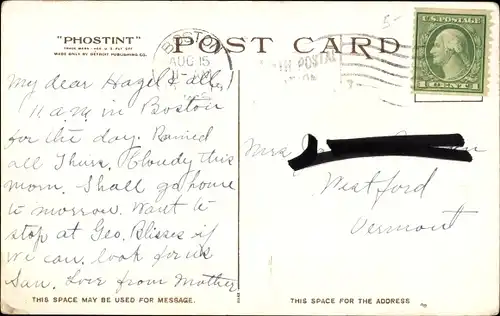 "PHOSTINT"
TRADE MARK - REG U.S. PAT. OFF.
MADE ONLY BY DETROIT PUBLISHING CO.
POST CARD
BOSTON
AUG 15
POSTAL
U.S. POSTAGE
1 CENT 1
My dear Hazel & all;
11 a.m in Boston
for the day. Rained
all Thurs. Cloudy this
morn. Shall go home
to morrow. Want to
stop at Geo. Blisses if
we can. look for us
Sun. Love from Mother
Mrs
Westford
Vermont
THIS SPACE MAY BE USED FOR MESSAGE.
THIS SPACE IS FOR THE ADDRESS